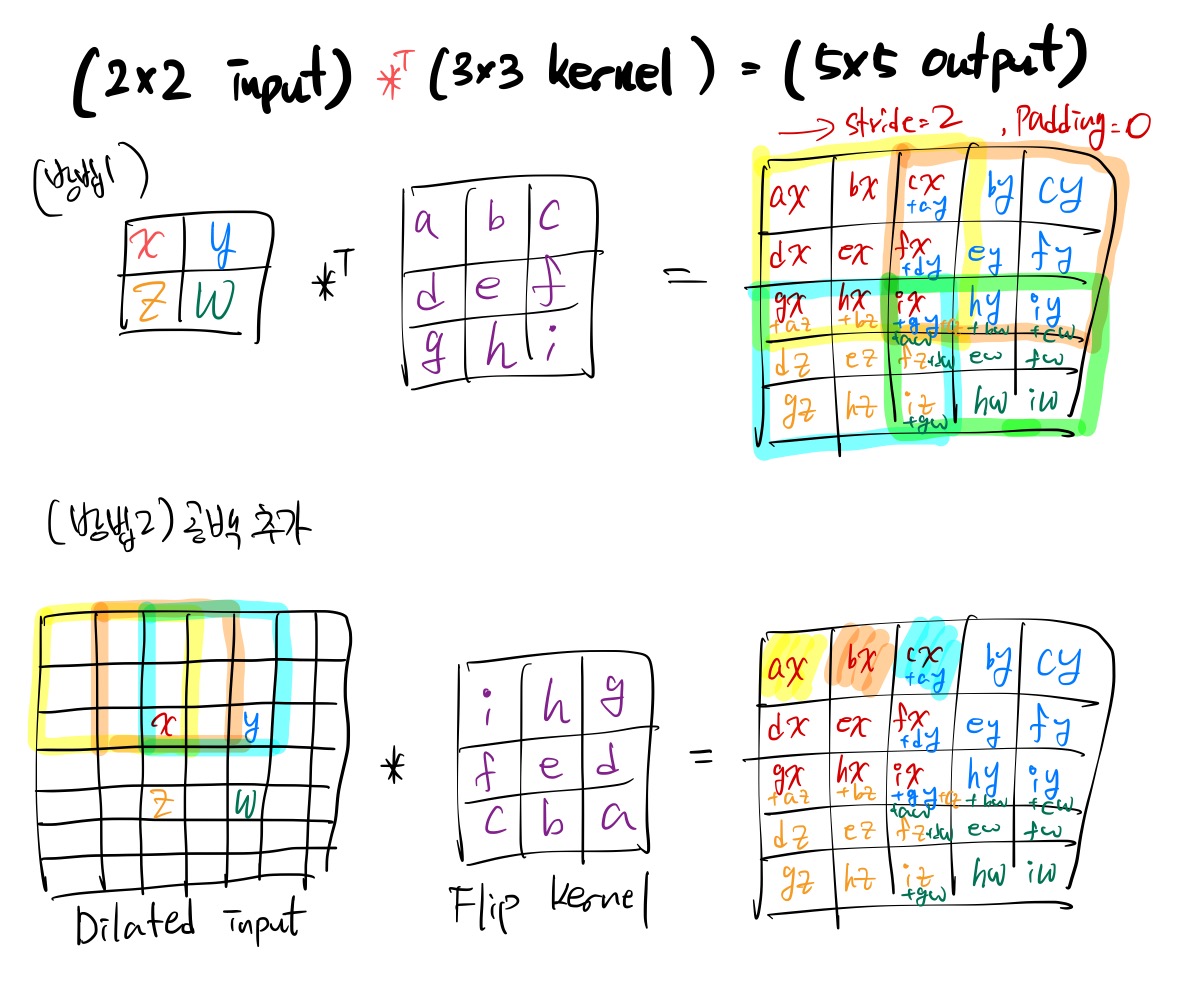 (2×2 input) *ᵀ (3×3 kernel) = (5×5 output)
→ stride=2 , Padding=0
(방법1)
x y
z w
*ᵀ
a b c
d e f
g h i
=
ax bx cx+ay by cy
dx ex fx+dy ey fy
gx+az hx+bz ix+gy+cz+aw hy+bw iy+cw
dz ez fz+dw ew fw
gz hz iz+gw hw iw
(방법2) 공백 추가
x y
z w
Dilated input
*
i h g
f e d
c b a
Flip kernel
=
ax bx cx+ay by cy
dx ex fx+dy ey fy
gx+az hx+bz ix+gy+cz+aw hy+bw iy+cw
dz ez fz+dw ew fw
gz hz iz+gw hw iw